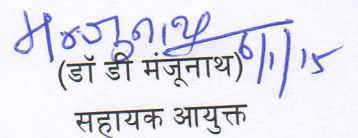 मन्जुनाथ
6/1/15
(डॉ डी मंजूनाथ)
सहायक आयुक्त